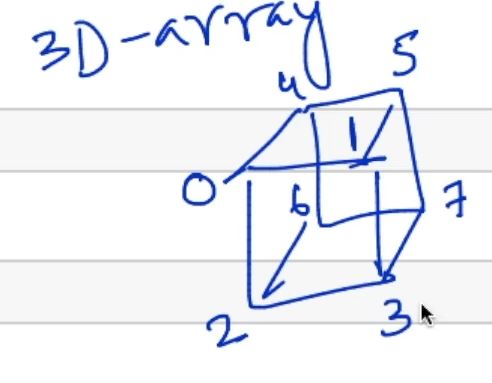 3D-array
4 5
1
0 6 7
2 3